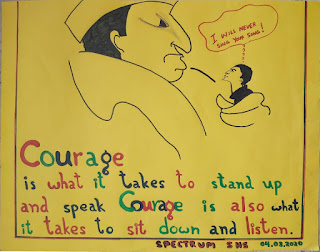 I WILL NEVER
SING YOUR SONG!
Courage
is what it takes to stand up
and speak Courage is also what
it takes to sit down and listen.
SPECTRUM SNS 04.03.2020